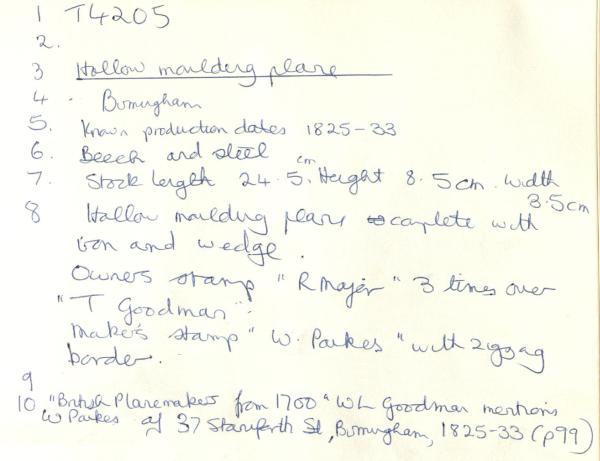 1 T4205
2.
3 Hollow moulding plane
4 Birmingham
5. Known production dates 1825-33
6. Beech and steel
7. Stock length 24.5cm. Height 8.5cm. Width
3.5cm
8 Hollow moulding plane complete with
iron and wedge.
Owners stamp "R Major" 3 times over
"T Goodman".
Maker's stamp "W. Parkes" with zigzag
border.
9
10 "British Planemakers from 1700" WL Goodman mentions
W Parkes of 37 Staniforth St, Birmingham, 1825-33 (p99)